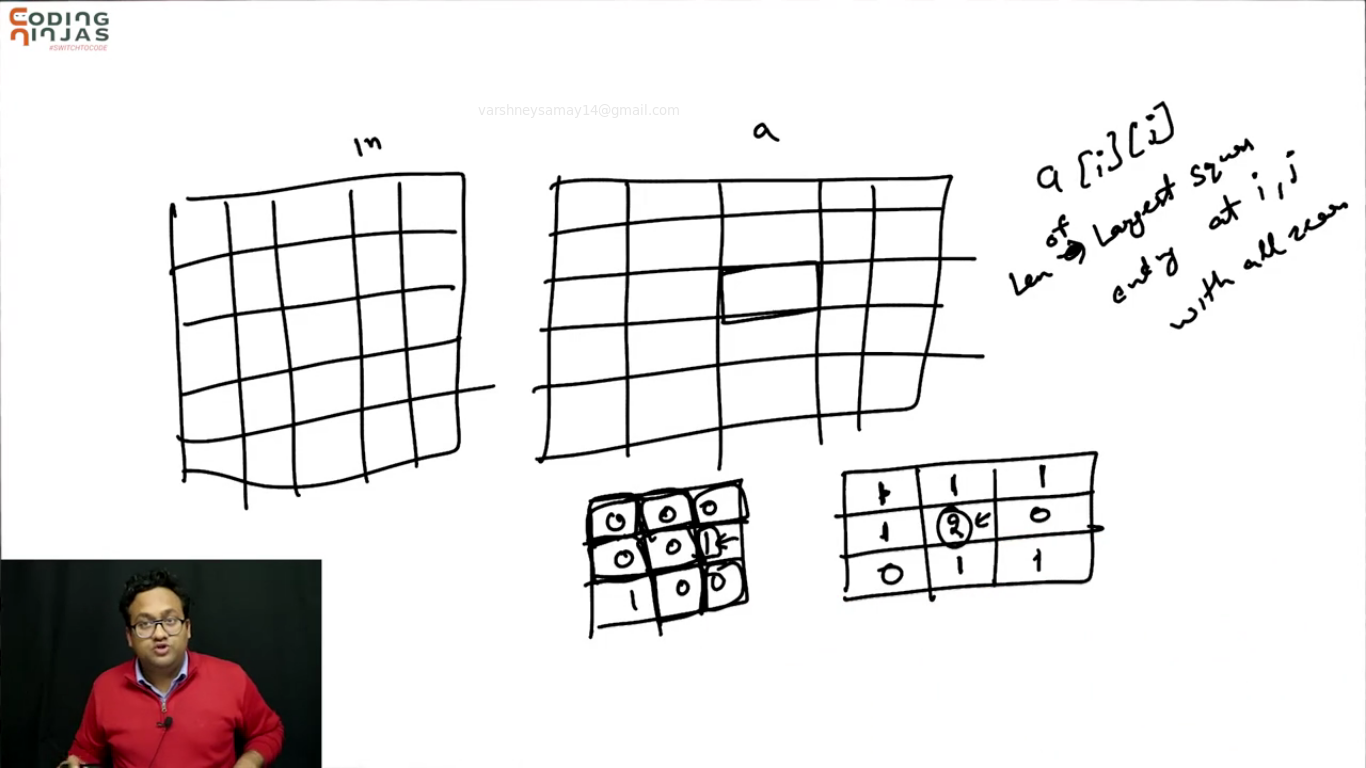 CODING
NINJAS
#SWITCHTOCODE
varshneysamay14@gmail.com
In
a
a[i][j]
Len of Largest square
ending at i,j
with all zeros
0 0 0
0 0 1
1 0 0
1 1 1
1 2 0
0 1 1